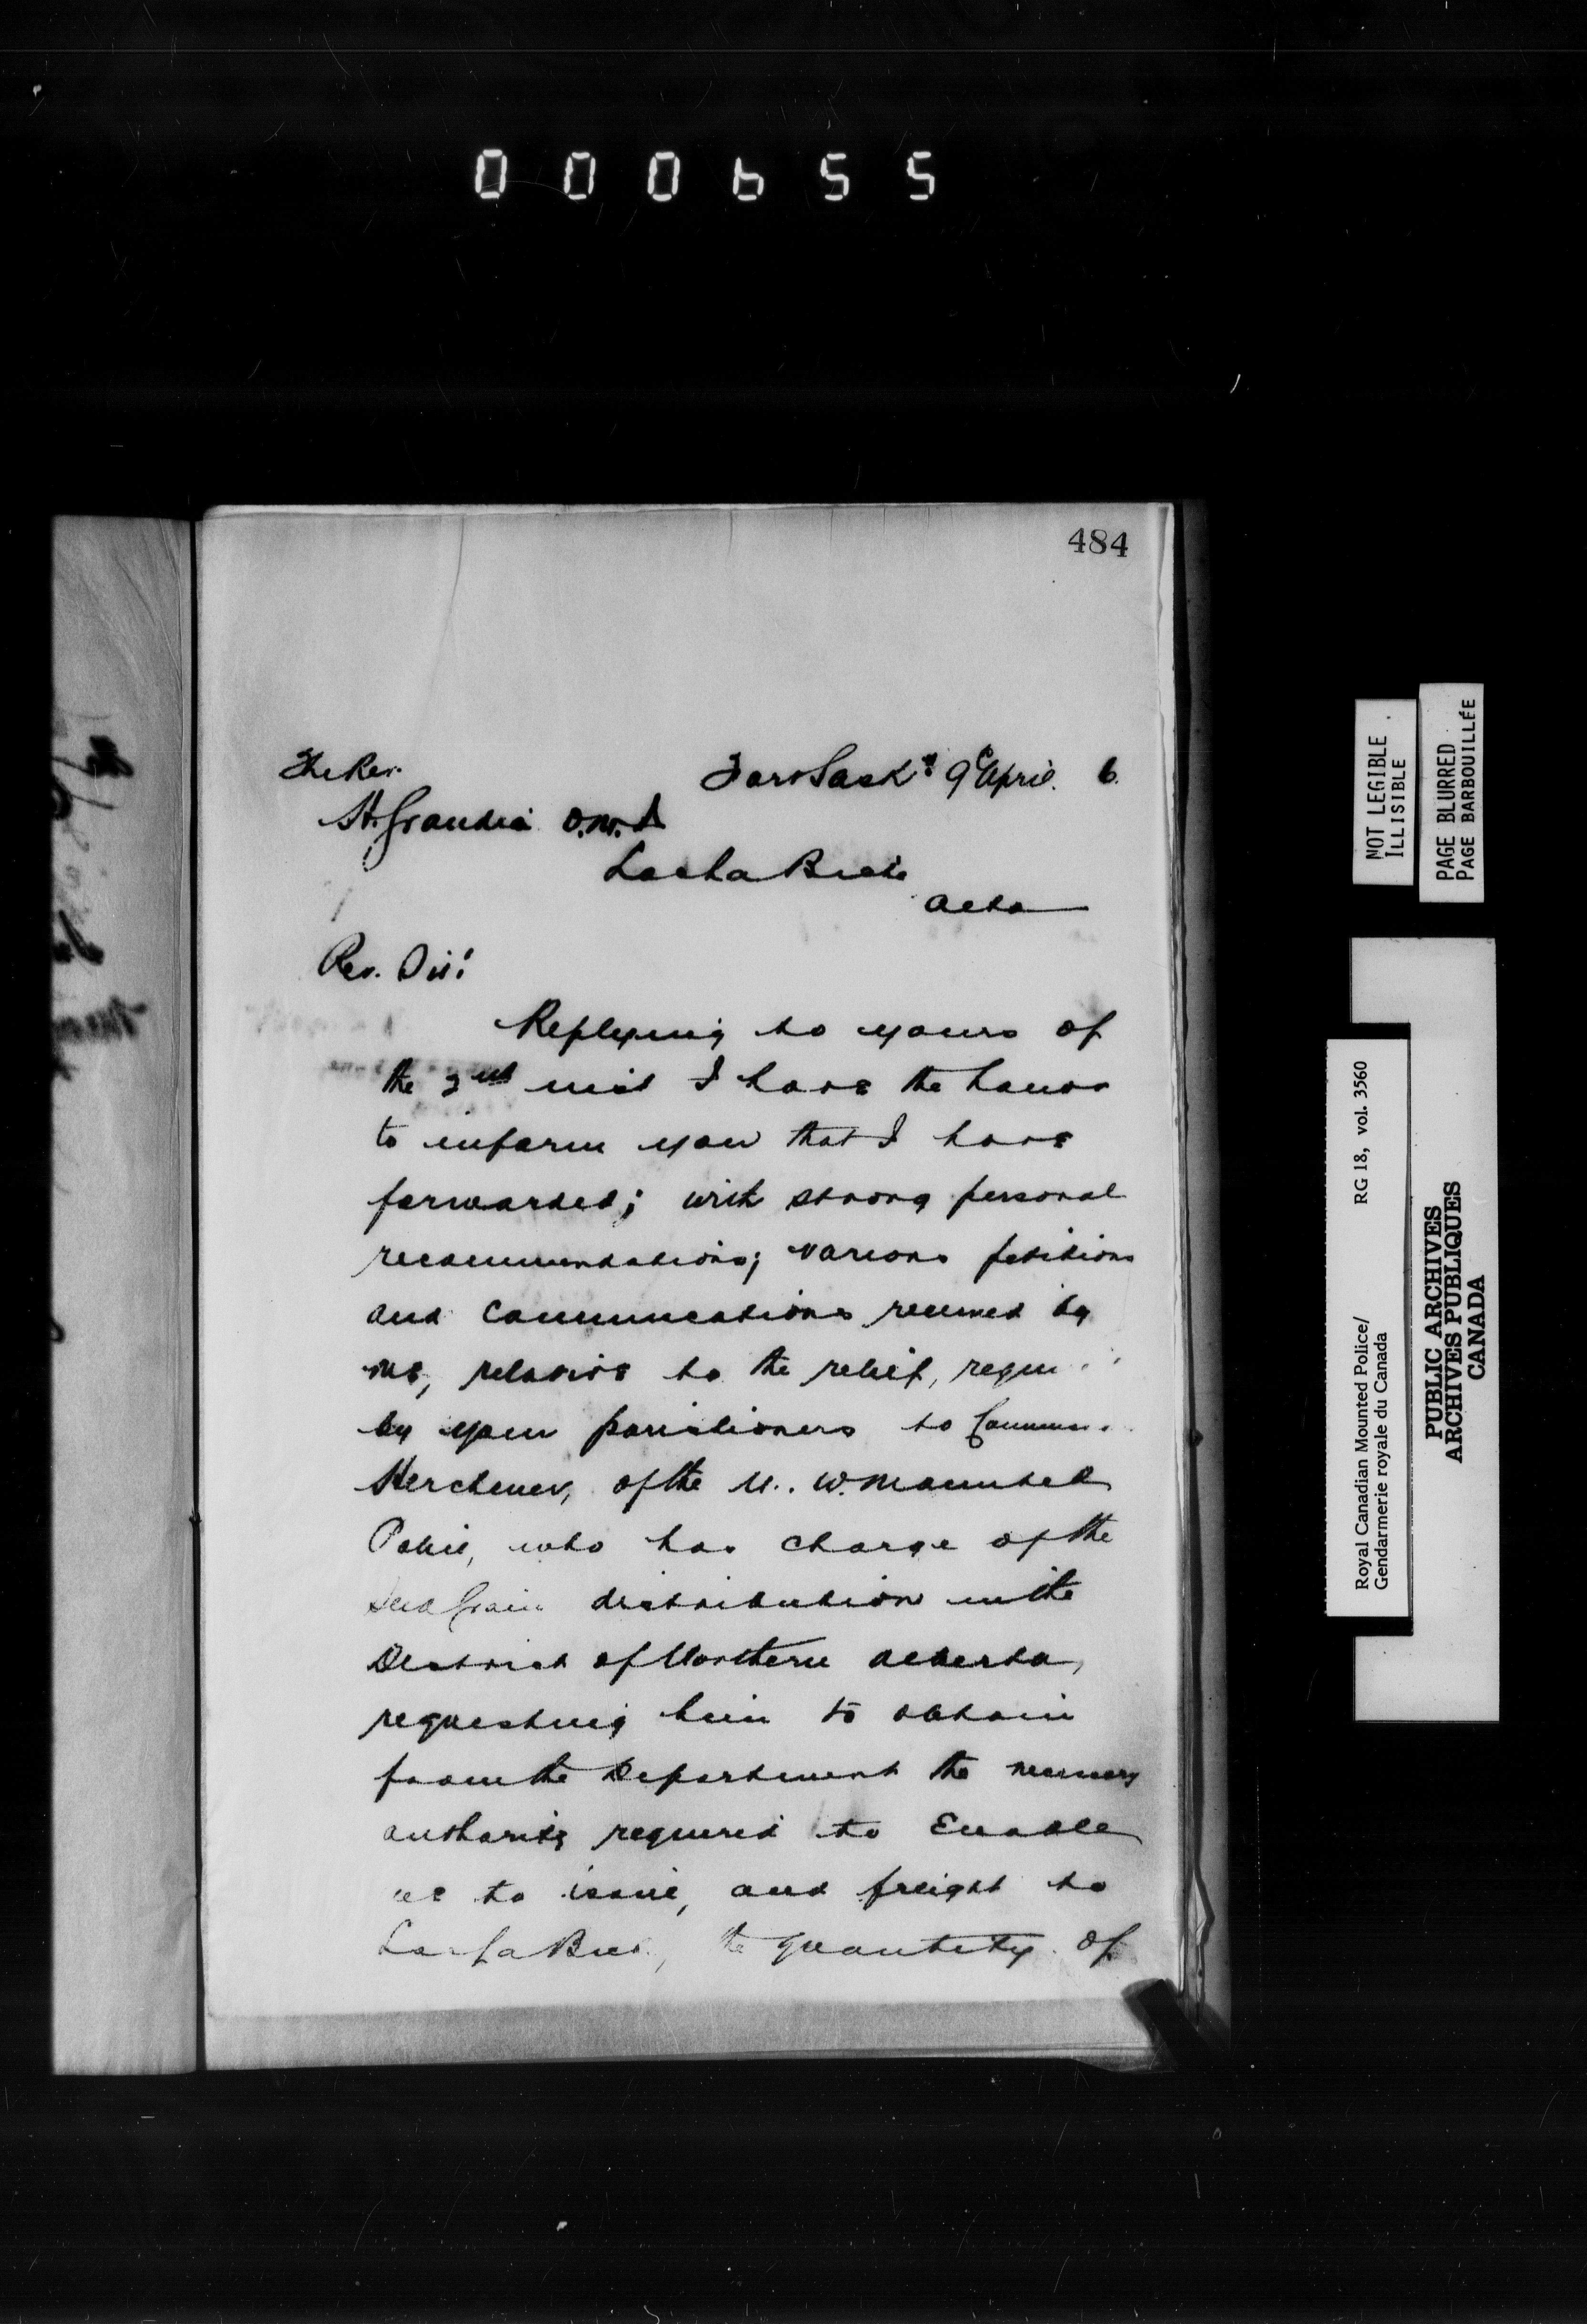 000655
484
The Rev.
Fort Sask. 9 April. 6.
H. Grandin O.M.I
Lac La Biche
Alta
Rev. Sir:
Replying to yours of
the 2nd inst I have the honor
to inform you that I have
forwarded; with strong personal
recommendations; various petitions
and communications received by
me, relative to the relief, requi
by your parishioners to Commr.
Herchmer, of the N. W. Mounted
Police, who has charge of the
Seed Grain distribution in the
District of Northern Alberta,
requesting him to obtain
from the Department the necessary
authority required to Enable
us to issue, and freight to
Lac La Biche, the quantity of
NOT LEGIBLE
ILLISIBLE
PAGE BLURRED
PAGE BARBOUILLÉE
Royal Canadian Mounted Police/
Gendarmerie royale du Canada
RG 18, vol. 3560
PUBLIC ARCHIVES
ARCHIVES PUBLIQUES
CANADA